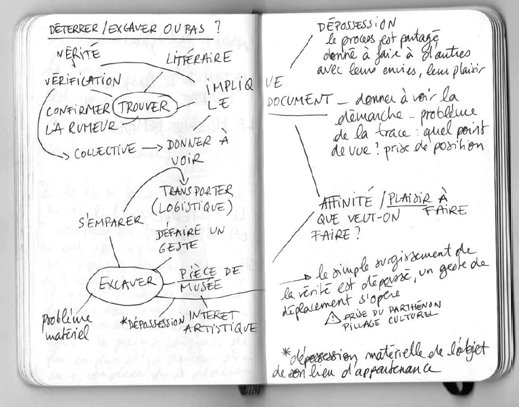 DÉTERRER / EXCAVER OU PAS ?
VÉRITÉ
LITTÉRAIRE
VÉRIFICATION
IMPLIQUE
LE
CONFIRMER
LA RUMEUR
TROUVER
COLLECTIVE
DONNER À
VOIR
TRANSPORTER
(LOGISTIQUE)
S'EMPARER
DÉFAIRE UN
GESTE
EXCAVER
PIÈCE DE
MUSÉE
problème
matériel
*DÉPOSSESSION
INTERET
ARTISTIQUE
DÉPOSSESSION
le process est partagé
donné à faire à d'autres
avec leurs envies, leur plaisir
DOCUMENT – donner à voir la
démarche – problème
de la trace : quel point
de vue ? prise de position
AFFINITÉ / PLAISIR À
FAIRE
QUE VEUT-ON
FAIRE ?
le simple surgissement de
la vérité est dépassé, un geste de
déplacement s'opère
PRISE DU PARTHÉNON
PILLAGE CULTUREL
*dépossession matérielle de l'objet
de son lieu d'appartenance